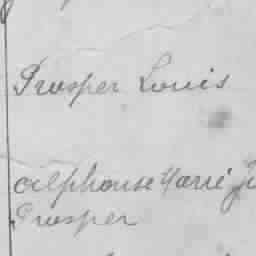 Prosper Louis
Alphonse Marie
Prosper